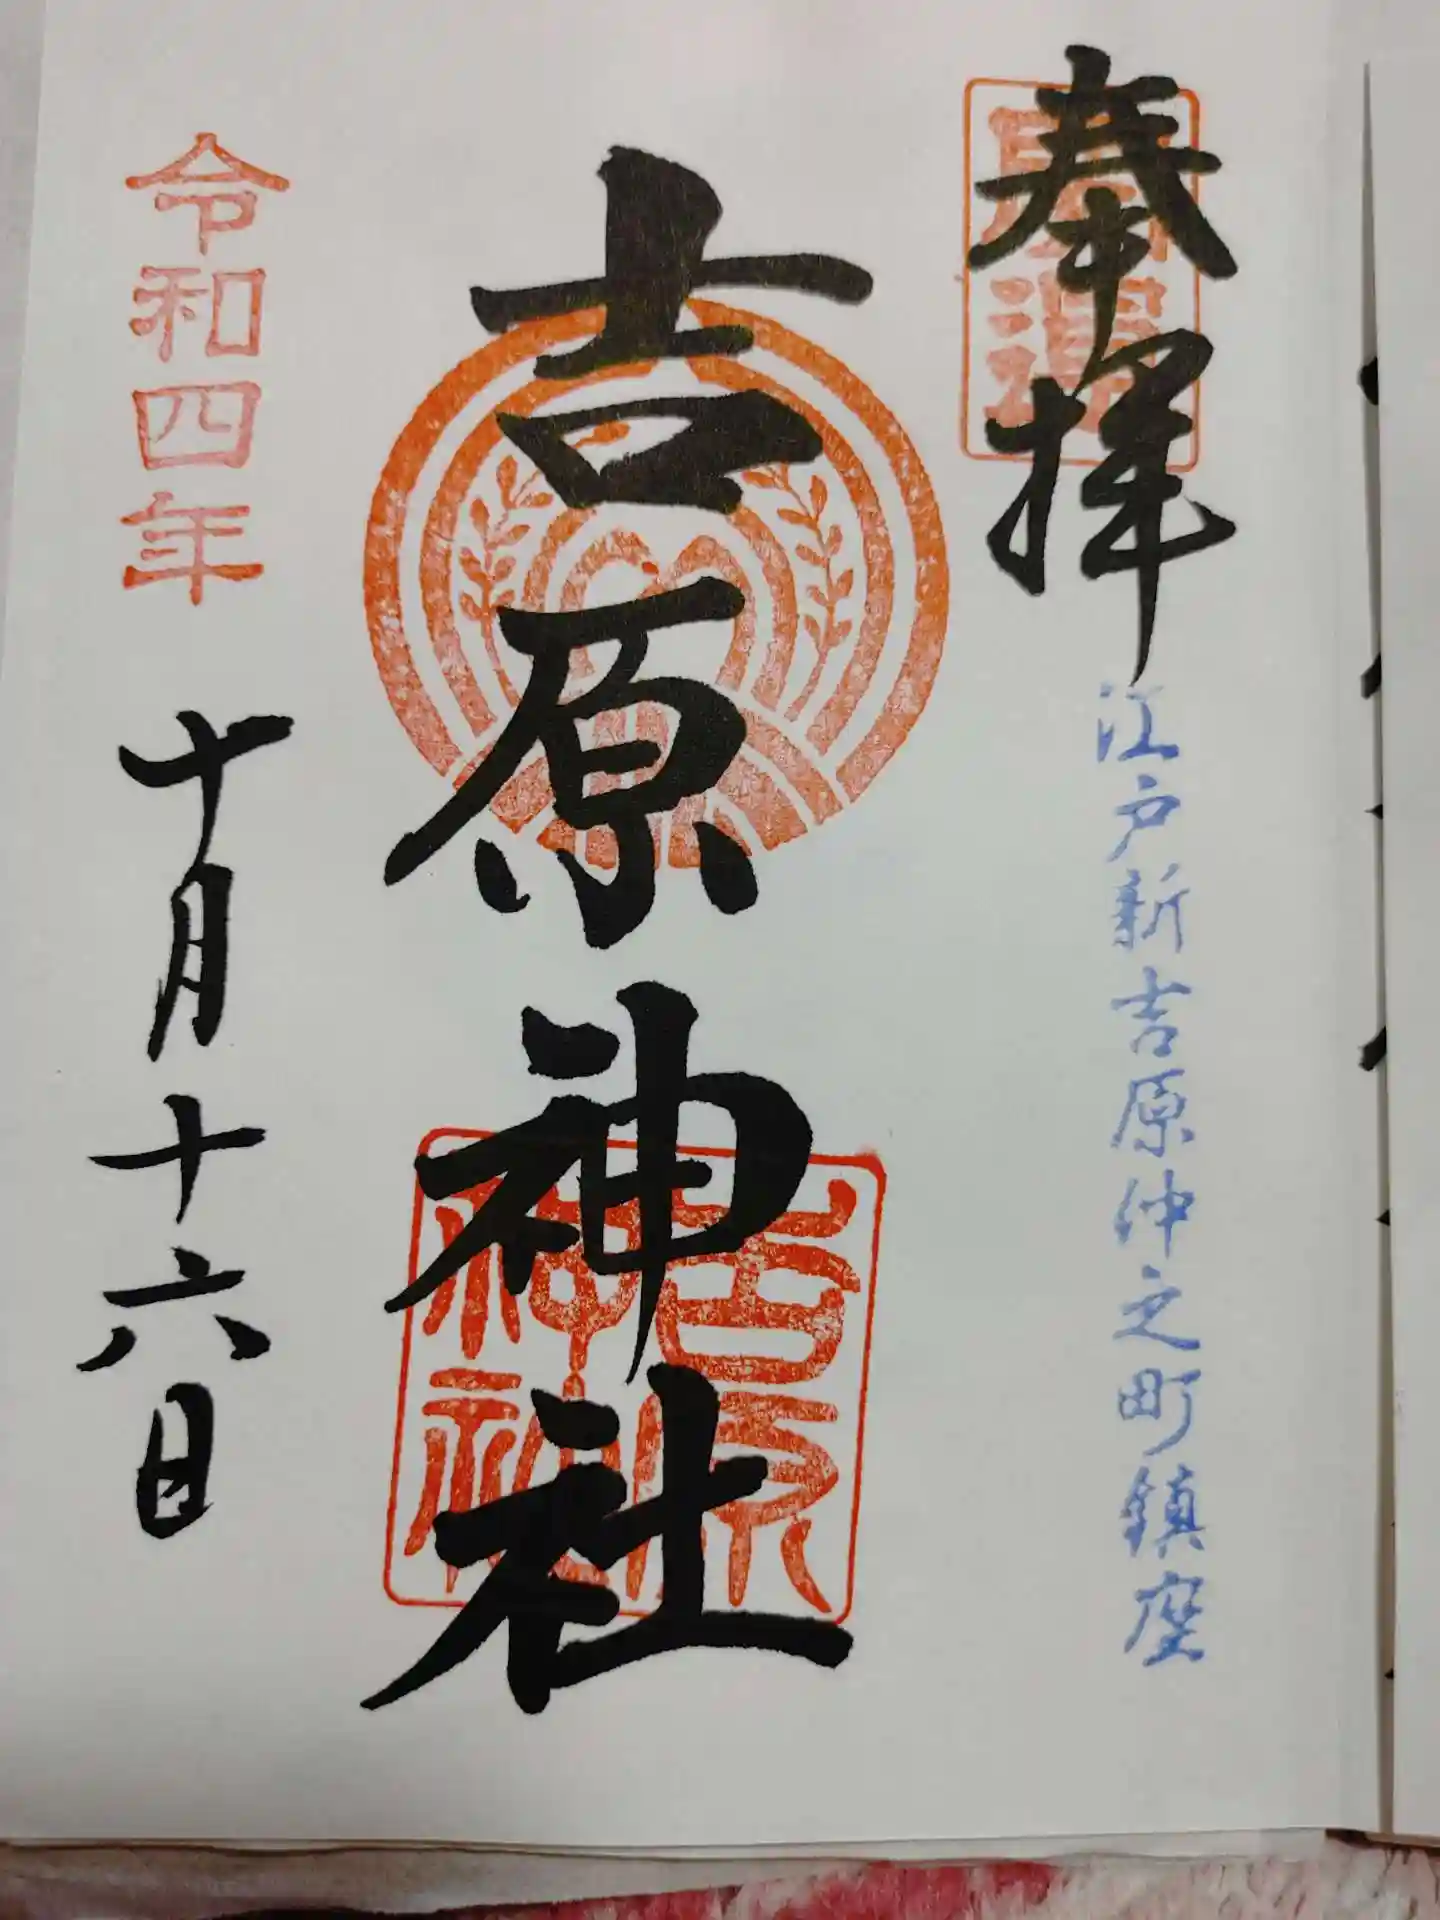 奉拝
江戸新吉原仲之町鎮座
吉原神社
吉原
神社
令和四年十月十六日